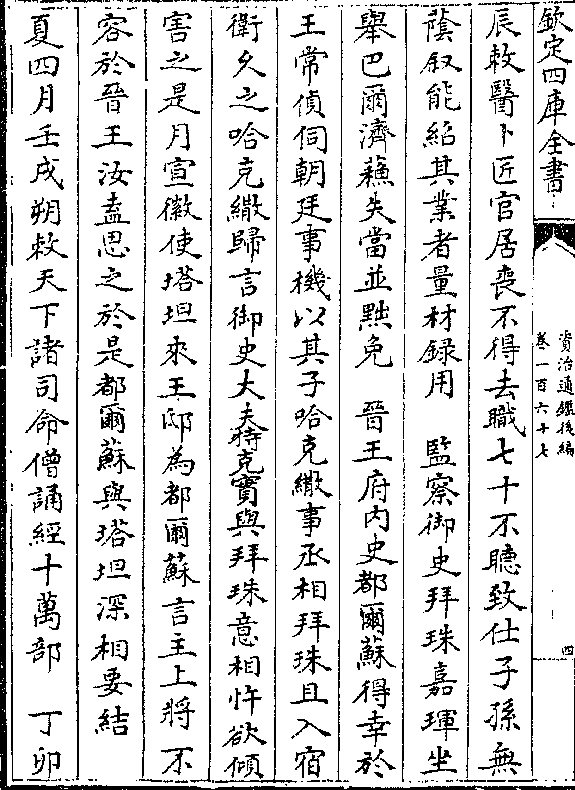 欽定四庫全書
資治通鑑後編
卷一百六十七
四
辰敕醫卜匠官居喪不得去職七十不聽致仕子孫無
蔭叙能紹其業者量材錄用　監察御史拜珠嘉琿坐
舉巴爾濟蘓失當並黜免　晉王府内史都爾蘇得幸於
王常偵伺朝廷事機以其子哈克繖事丞相拜珠且入宿
衛久之哈克繖歸言御史大夫特克寶與拜珠意相忤欲傾
害之是月宣徽使塔坦來王邸為都爾蘇言主上將不
容於晉王汝盍思之於是都爾蘇與塔坦深相要結
夏四月壬戌朔敕天下諸司命僧誦經十萬部　丁卯